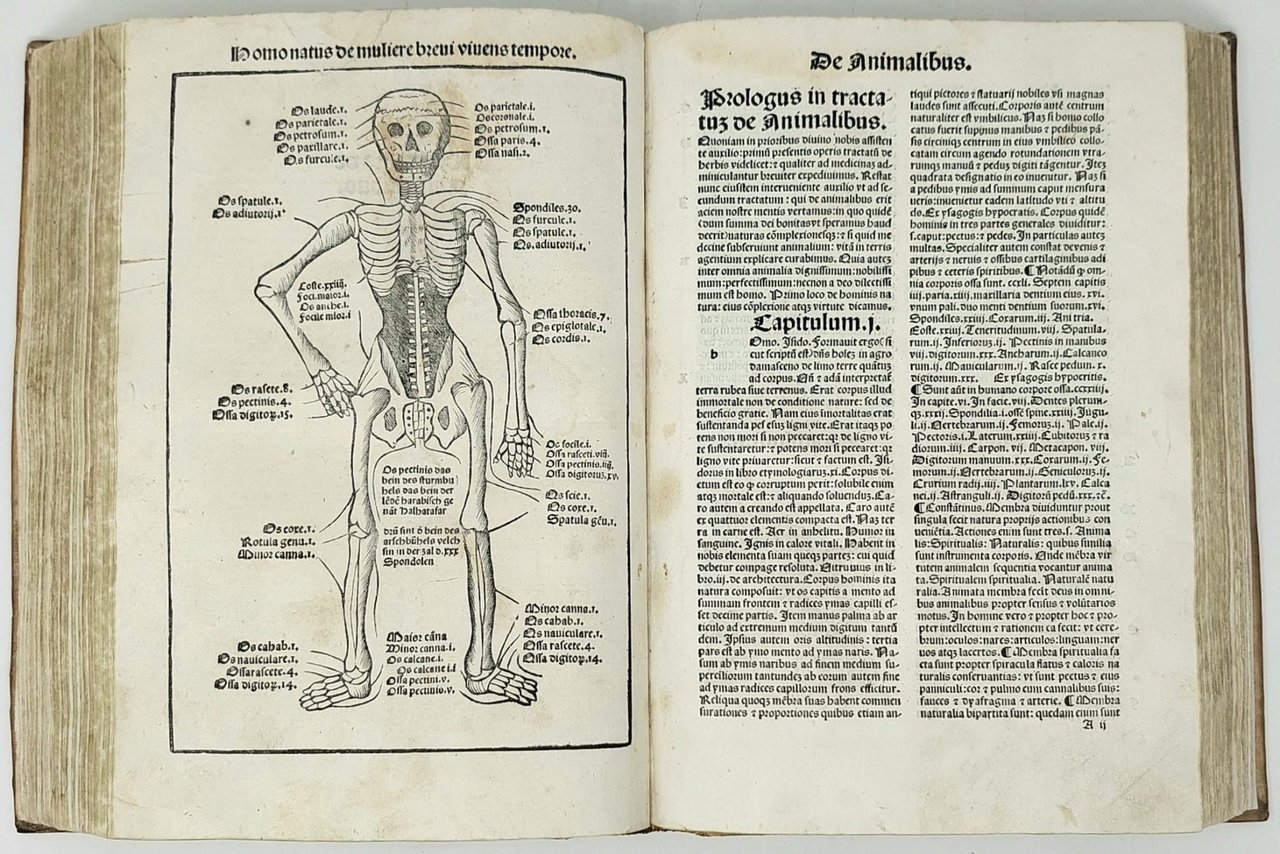 Homo natus de muliere brevi vivens tempore.
Os laude.1.
Os parietale.1.
Os petrosum.1.
Os paxillare.1.
Os furcule.1.
Os parietale.i.
Os coronale.i.
Os petrosum.1.
Ossa paris.4.
Ossa nasi.2.
Os spatule.1.
Os adiutorij.1.
Spondiles.30.
Os furcule.1.
Os spatule.1.
Os. adiutorij.1.
Coste.xxiiij.
Foci.maior.i.
Os anche.i.
Focile mior.i
Ossa thoracis.7.
Os epiglotale.1.
Os cordis.1.
Os rasete.8.
Os pectinis.4.
Ossa digitoꝝ.15.
Os focile.i.
Ossa rasceti.viij.
Ossa pectinis.iiij.
Ossa digitorus.xv.
Os pectinis das
bein des sturmbu
hels das bein der
lēdē harabisch ge
nāt Halhatasar
Os scie.1.
Os coxe.1.
Spatula gēu.1.
Os coxe.1.
Rotula genu.1.
Minor canna.1.
drū sint ō bein des
arschbühels velch
sin in der zal d.xxx
Spondolen
Minor canna.1.
Os cahab.1.
Os nauiculare.1.
Ossa rascete.4.
Ossa digitoꝝ.14.
Os cahab.1.
Os nauiculare.1.
Ossa rascete.4.
Ossa digitoꝝ.14.
Maior cāna
Minor canna.i.
Os calcane.i.
Os calcane i.i
Ossa pectini.v.
Ossa pectinis.v.
De Animalibus.
Prologus in tracta-
tuꝫ de Animalibus.
Quoniam in prioribus diuino nobis assisten
te auxilio: primū presentis operis tractatū de
herbis videlicet: ⁊ qualiter ad medicinas ad-
miniculantur breuiter expediuimus. Restat
nunc eiusdem interueniente auxilio vt ad se-
cundum tractatum: qui de animalibus erit
aciem nostre mentis vertamus: in quo quidē
cum summa dei bonitas vt speramus haud
deerit) naturas cōplexionesqꝫ: ⁊ si quid me
decine subseruiunt animalium: vitā in terris
agentium explicare curabimus. Quia autez
inter omnia animalia dignissimum: nobilissi
mum: perfectissimum: necnon a deo dilectissi
mum est homo. Primo loco de hominis na
tura: eius cōplexione atqꝫ virtute dicamus.
Capitulum.j.
h Omo. Isido. Formauit ergo (si
cut scriptū est) dn̄s hoīez in agro
damasceno de limo terre quātuꝫ
ad corpus. Oñ ⁊ adā interpretat̄
terra rubea siue terrenus. Erat corpus illud
immortale non de conditione nature: sed de
beneficio gratie. Nam eius imortalitas erat
sustentanda per esuꝫ ligni vite. Erat itaqꝫ po
tens non mori si non peccaret: qꝛ de ligno vi-
te sustentaretur: ⁊ potens mori si peccaret: qꝛ
ligno vite priuaretur: sicut ⁊ factum est. Isi-
dorus in libro etymologiarus.xi. Corpus di-
ctum est eo ꝙ corruptum perit: solubile enim
atqꝫ mortale est: ⁊ aliquando soluendus. Ca-
ro autem a creando est appellata. Caro autē
ex quattuor elementis compacta est. Naꝫ ter
ra in carne est. Aer in anhelitu. Humor in
sanguine. Ignis in calore vitali. Habent in
nobis elementa suam queqꝫ parteꝫ: cui quid
debetur compage resoluta. Vitruuius in li-
bro.iij. de architectura. Corpus hominis ita
natura composuit: vt os capitis a mento ad
summam frontem ⁊ radices ymas capilli es-
set decime partis. Item manus palma ab ar
ticulo ad extremum medium digitum tantū
dem. Ipsius autem oris altitudinis: tertia
pars est ab ymo mento ad ymas naris. Na-
sum ab ymis naribus ad finem medium su-
perciliorum tantundeꝫ ab eorum autem fine
ad ymas radices capillorum frons efficitur.
Reliqua quoqꝫ mēbra suas habent commen
surationes ⁊ proportiones quibus etiam an-
tiqui pictores ⁊ statuarij nobiles vsi magnas
laudes sunt assecuti. Corporis autē centrum
naturaliter est vmbilicus. Naꝫ si homo collo
catus fuerit supinus manibus ⁊ pedibus pā-
sis circiniqꝫ centrum in eius vmbilico collo-
catam circum agendo rotundationem vtra-
rumqꝫ manuū ⁊ peduꝫ digiti tāgentur. Iteꝫ
quadrata designatio in eo inuenitur. Naꝫ si
a pedibus ymis ad summum caput mensura
ueris: inuenietur eadem latitudo vti ⁊ altitu
do. Ex ysagogis hypocratis. Corpus quidē
hominis in tres partes generales diuiditur:
s. caput: pectus: ⁊ pedes. In particulas auteꝫ
multas. Specialiter autem constat de venis ⁊
arterijs ⁊ neruis ⁊ ossibus cartilaginibus adi
pibus ⁊ ceteris spiritibus. ¶ Notādū ꝙ om-
nia corporis ossa sunt. ccxli. Septem capitis
iiij. paria. xiij. maxillaria dentium eius. xvi.
vnum pali. duo menti dentium suorum. xvi.
Spondiles. xxiij. Coxarum. iij. Ani tria.
Coste. xxiij. Teneritudinum. vij. Spatula-
rum. ij. Inferiorus. ij. Pectinis in manibus
viij. digitorum. xxx. Ancharum. ij. Calcaneo
rum. ij. Nauicularum. ij. Rasce pedum. x.
digitorum. xxx. Ex ysagogis hypocritis.
¶ Sunt aūt in humano corpore ossa. ccxxiij.
In capite. vi. In facie. viij. Dentes plerum-
qꝫ. xxxij. Spondilia. i. osse spine. xxiij. Jugu-
li. ij. Vertebrarum. ij. Femorus. ij. Pale. ij.
Pectoris. i. Laterum. xxiij. Cubitorus ⁊ ra
diorum. iiij. Carpon. vij. Metacapon. viij.
Digitorum manuum. xxx. Coxarum. ij. Fe-
morum. ij. Vertebrarum. ij. Geniculorus. ij.
Crurium radij. iiij. Plantarum. lxv. Calca
nei. ij. Astranguli. ij. Digitorū pedū. xxx. ⁊c.
¶ Constātinus. Membra diuiduntur prout
singula fecit natura proprijs actionibus con
uenētia. Actiones enim sunt tres. s. Anima
lis: Spiritualis: Naturalis: quibus similia
sunt instrumenta corporis. Unde mēbra vir
tutem animalem sequentia vocantur anima
ta. Spiritualem spiritualia. Naturalē natu
ralia. Animata membra fecit deus in omni-
bus animalibus propter sensus ⁊ volūtarios
motus. In homine vero ⁊ propter hoc ⁊ pro-
pter intellectum ⁊ rationem ea fecit: vt cere-
brum: oculos: nares: articulos: linguam: ner
uos atqꝫ lacertos. ¶ Membra spiritualia fa
cta sunt propter spiracula flatus ⁊ caloris na
turalis conseruantias: vt sunt pectus ⁊ eius
panniculi: cor ⁊ pulmo cum cannalibus suis:
fauces ⁊ dyafragma ⁊ arterie. ¶ Membra
naturalia bipartita sunt: quedam enim sunt
A ij